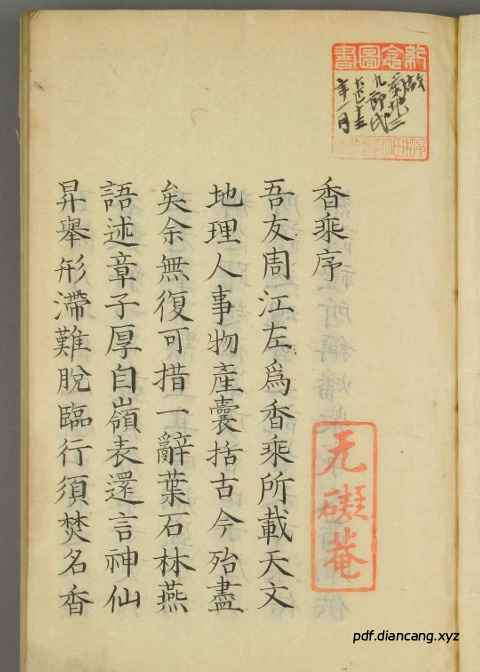 紀念圖書
故
菊池
九郎氏
年一月
香乘序
吾友周江左爲香乘所載天文
地理人事物產囊括古今殆盡
矣余無復可措一辭葉石林燕
語述章子厚自嶺表還言神仙
昇舉形滯難脫臨行須焚名香
无礙菴
pdf.diancang.xyz